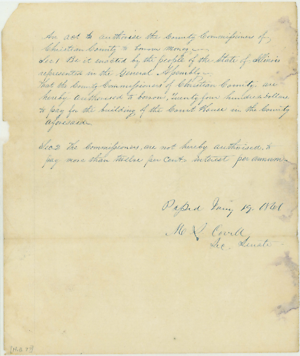 An act to authorise the County Commissioners of
Christian County to borrow money.
Sec 1 Be it enacted by the people of the State of Illinois
represented in the General Assembly
that the County Commissioners of Christian County are
hereby authorised to borrow, Twenty four hundred dollars
to pay for the building of the Court House in the County
aforesaid
Sec. 2 The Commissioners are not hereby authorised to
pay more than twelve per Cent interest per annum
Passed Jany 19, 1841
M L Covell
Sec. Senate